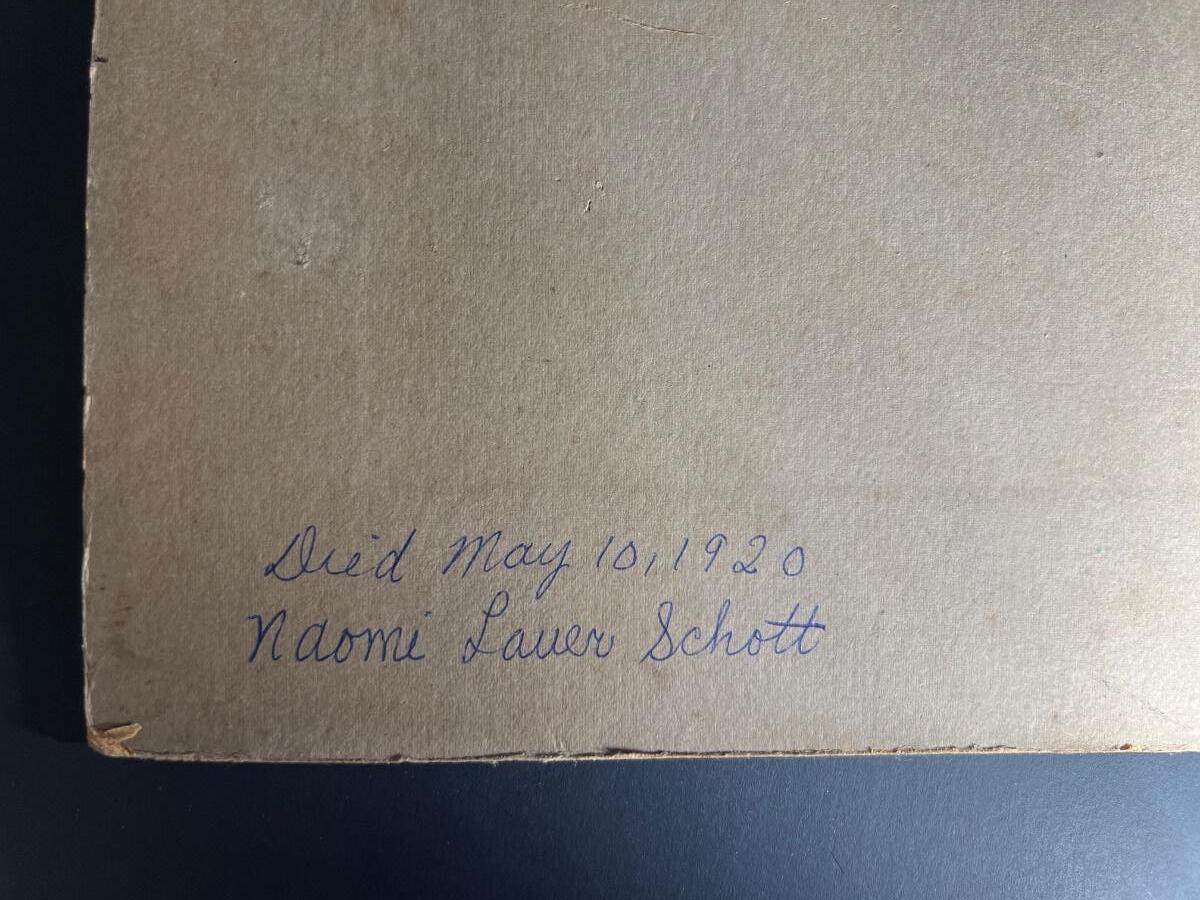 Died May 10, 1920
Naomi Lauer Schott